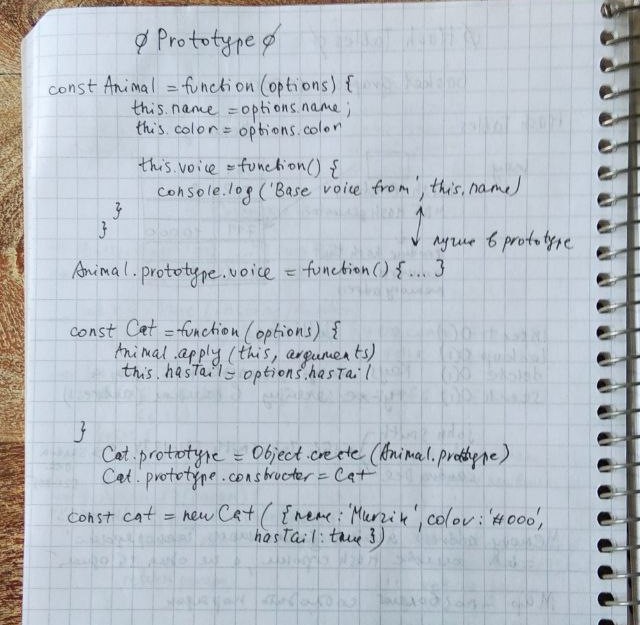 ∅ Prototype ∅
const Animal = function (options) {
this.name = options.name;
this.color = options.color
this.voice = function() {
console.log ('Base voice from', this.name)
}
}
лучше в prototype
Animal.prototype.voice = function() {...}
const Cat = function (options) {
Animal.apply (this, arguments)
this.hasTail = options.hasTail
}
Cat.prototype = Object.create (Animal.prototype)
Cat.prototype.constructor = Cat
const cat = new Cat ( {name: 'Murzik', color: '#000',
hasTail: true })